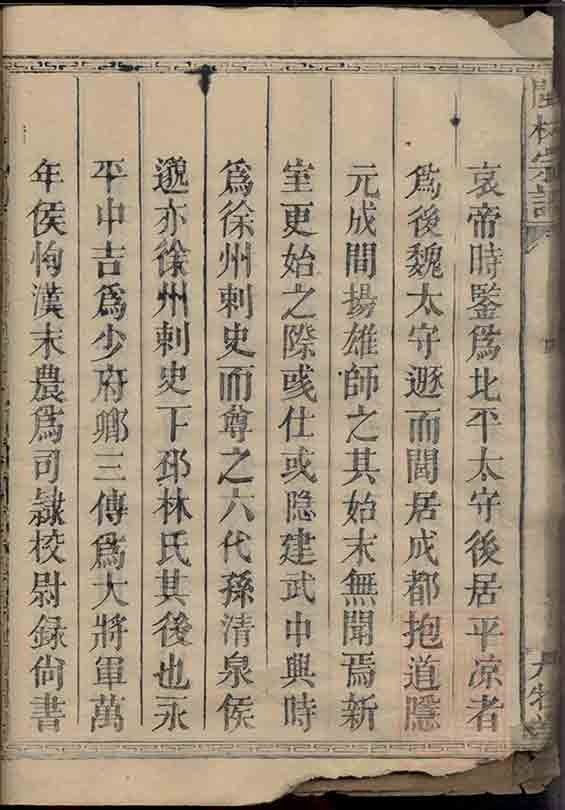 閩林宗譜
哀帝時鑒爲北平太守後居平凉者
爲後魏太守遯而閒居成都抱道隱
元成間揚雄師之其始末無聞焉新
室更始之際或仕或隐建武中興時
爲徐州刺史而尊之六代孫清泉侯
邈亦徐州刺史下邳林氏其後也永
平中吉爲少府鄉三傳爲大將軍萬
年侯恂漢末農爲司隸校尉録尙書